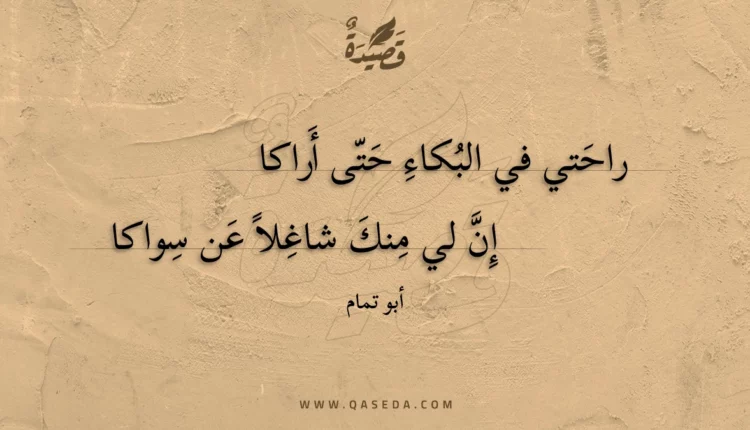 قَصِيدَةٌ
راحَتي في البُكاءِ حَتّى أَراكا
إِنَّ لي مِنكَ شاغِلاً عَن سِواكا
أبو تمام
WWW.QASEDA.COM